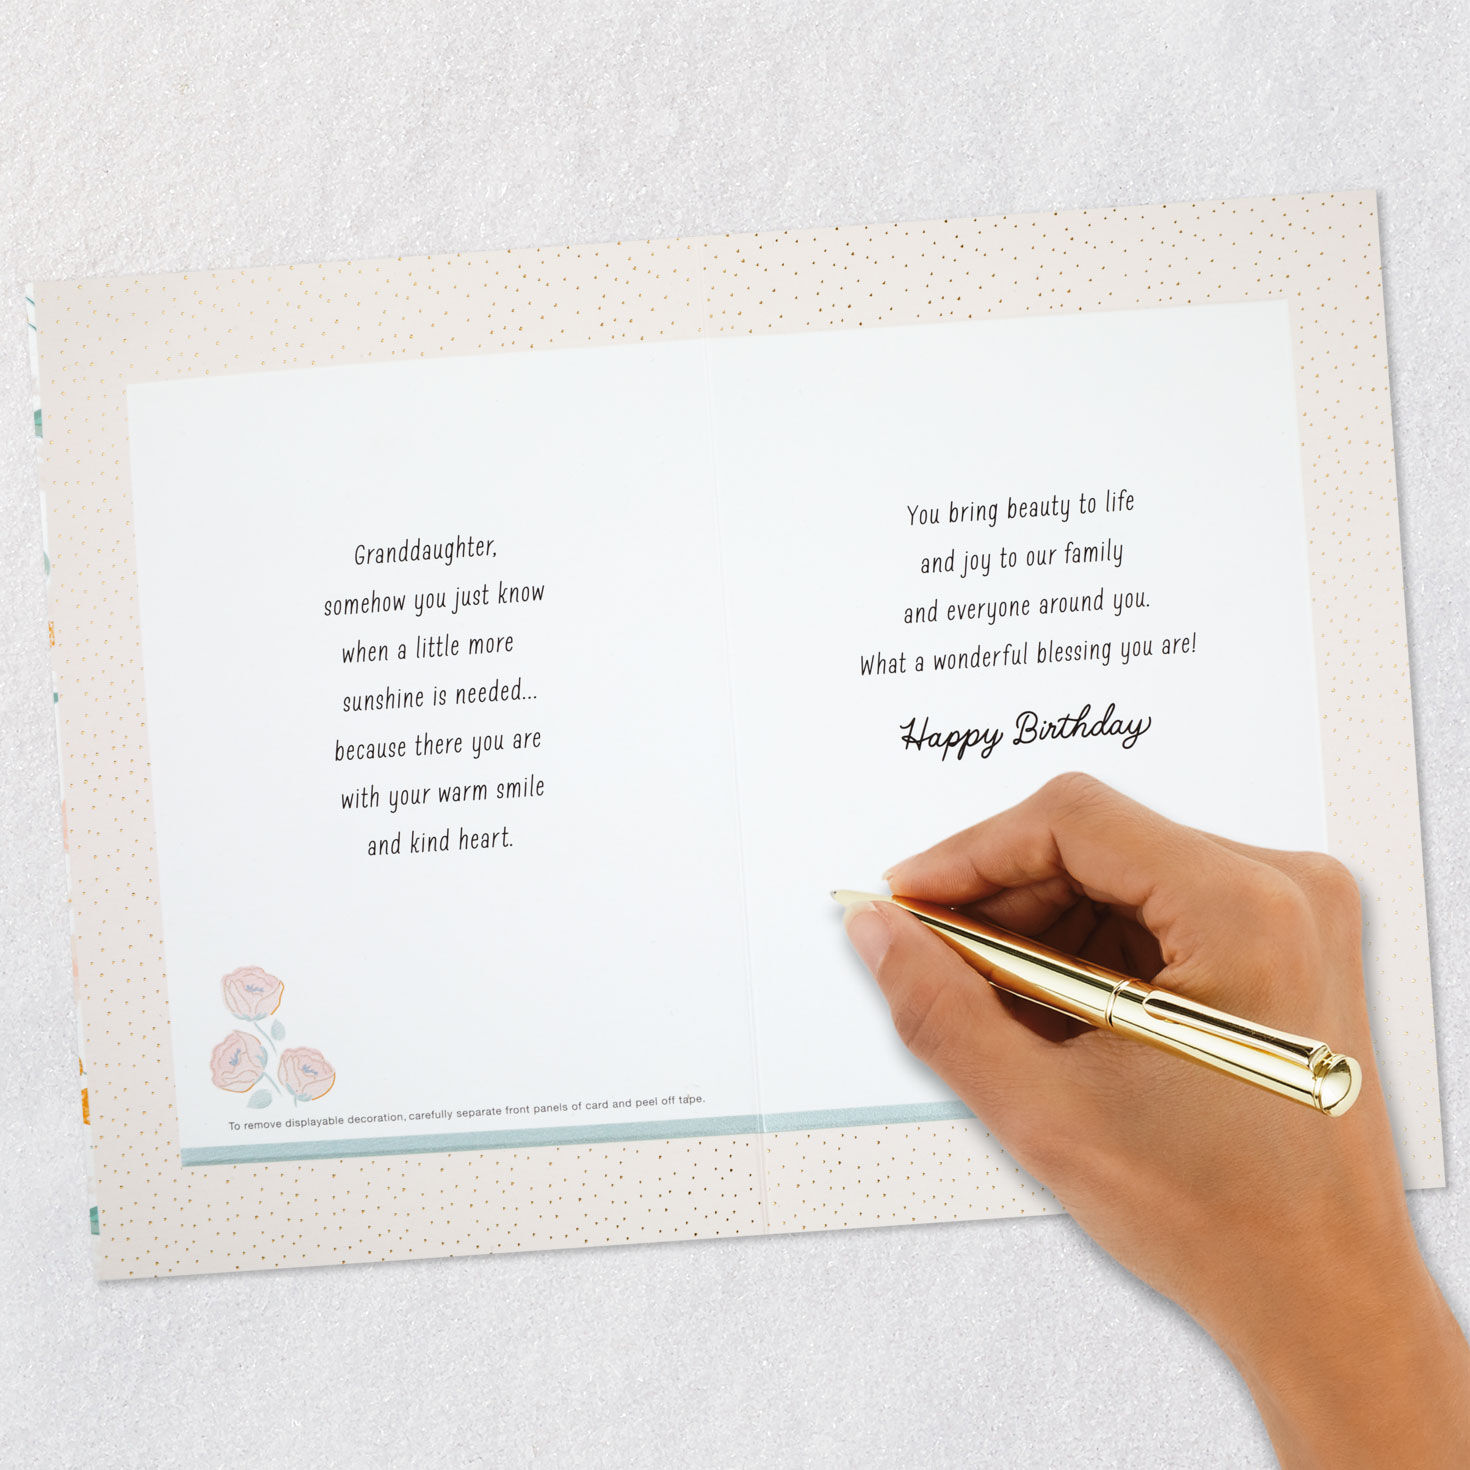 Granddaughter,
somehow you just know
when a little more
sunshine is needed...
because there you are
with your warm smile
and kind heart.
To remove displayable decoration, carefully separate front panels of card and peel off tape.
You bring beauty to life
and joy to our family
and everyone around you.
What a wonderful blessing you are!
Happy Birthday